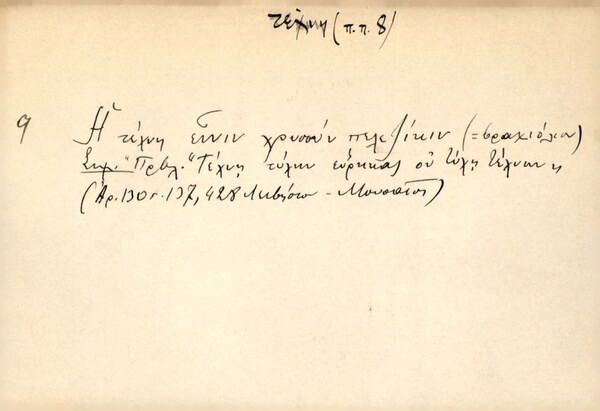 τέχνη (π.π. 8)
9 Ἡ τέχνη εἶνιν χρυσοῦν πελεζίκιν (= βραχιόλιον)
Σημ. "Πρβλ. "Τέχνη τύχην εὕρηκας οὐ τύχη τέχνην
(Αρ. 130 σ. 137, 428 Λεβήσσιον - Μουσαῖος)